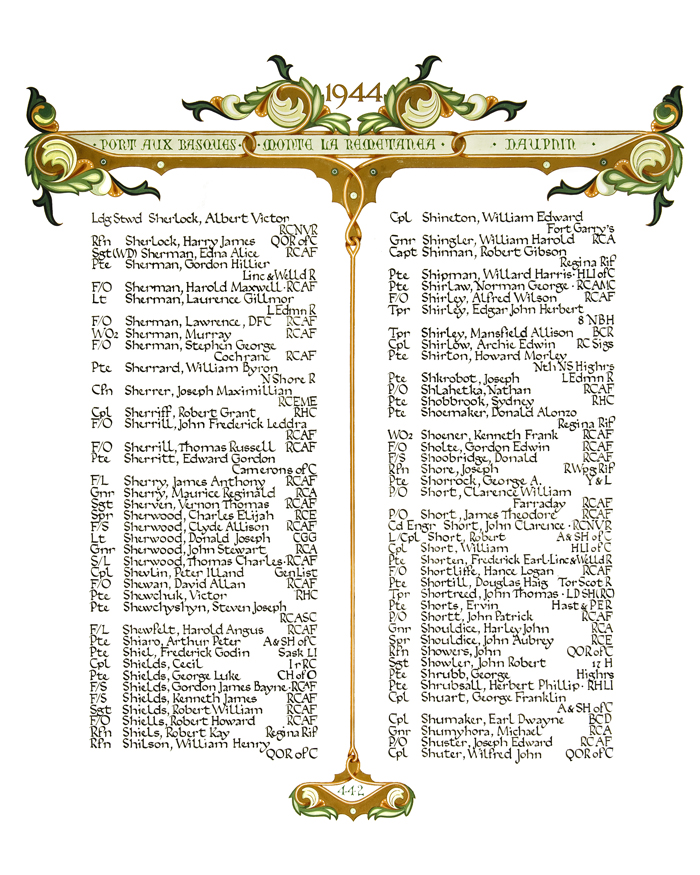 1944
· PORT AUX BASQUES · MONTE LA REMETANEA · DAUPHIN ·
Ldg Stwd Sherlock, Albert Victor
RCNVR
Rfn Sherlock, Harry James QOR of C
Sgt(WD) Sherman, Edna Alice RCAF
Pte Sherman, Gordon Hillier
Linc & Welld R
F/O Sherman, Harold Maxwell · RCAF
Lt Sherman, Laurence Gillmor
L Edmn R
F/O Sherman, Lawrence, DFC RCAF
WO2 Sherman, Murray RCAF
F/O Sherman, Stephen George
Cochrane RCAF
Pte Sherrard, William Byron
N Shore R
Cfn Sherrer, Joseph Maximillian
RCEME
Cpl Sherriff, Robert Grant RHC
F/O Sherrill, John Frederick Leddra
RCAF
F/O Sherrill, Thomas Russell RCAF
Pte Sherritt, Edward Gordon
Camerons of C
F/L Sherry, James Anthony RCAF
Gnr Sherry, Maurice Reginald RCA
Sgt Sherven, Vernon Thomas RCAF
Spr Sherwood, Charles Elijah RCE
F/S Sherwood, Clyde Allison RCAF
Lt Sherwood, Donald Joseph CGG
Gnr Sherwood, John Stewart RCA
S/L Sherwood, Thomas Charles · RCAF
Cpl Shevlin, Peter Illand Gen List
F/O Shewan, David Allan RCAF
Pte Shewchuk, Victor RHC
Pte Shewchyshyn, Steven Joseph
RCASC
F/L Shewfelt, Harold Angus RCAF
Pte Shiaro, Arthur Peter A & SH of C
Pte Shiel, Frederick Godin Sask LI
Cpl Shields, Cecil Ir RC
Pte Shields, George Luke CH of O
F/S Shields, Gordon James Bayne · RCAF
F/S Shields, Kenneth James RCAF
Sgt Shields, Robert William RCAF
F/O Shiells, Robert Howard RCAF
Rfn Shiels, Robert Kay Regina Rif
Rfn Shilson, William Henry
QOR of C
Cpl Shineton, William Edward
Fort Garry's
Gnr Shingler, William Harold RCA
Capt Shinnan, Robert Gibson
Regina Rif
Pte Shipman, Willard Harris · HLI of C
Pte Shirlaw, Norman George · RCAMC
F/O Shirley, Alfred Wilson RCAF
Tpr Shirley, Edgar John Herbert
8 NBH
Tpr Shirley, Mansfield Allison BCR
Cpl Shirlow, Archie Edwin RC Sigs
Pte Shirton, Howard Morley
Nth NS Highrs
Pte Shkrobot, Joseph L Edmn R
P/O Shlahetka, Nathan RCAF
Pte Shobbrook, Sydney RHC
Pte Shoemaker, Donald Alonzo
Regina Rif
WO2 Shoener, Kenneth Frank RCAF
F/O Sholte, Gordon Edwin RCAF
F/S Shoobridge, Donald RCAF
Rfn Shore, Joseph R Wpg Rif
Pte Shorrock, George A. Y & L
P/O Short, Clarence William
Farraday RCAF
P/O Short, James Theodore RCAF
Cd Engr Short, John Clarence · RCNVR
L/Cpl Short, Robert A & SH of C
Cpl Short, William HLI of C
Pte Shorten, Frederick Earl · Linc & Welld R
F/O Shortliffe, Hance Logan RCAF
Pte Shortill, Douglas Haig Tor Scot R
Tpr Shortreed, John Thomas · LD SH(RC)
Pte Shorts, Ervin Hast & PER
P/O Shortt, John Patrick RCAF
Gnr Shouldice, Harley John RCA
Spr Shouldice, John Aubrey RCE
Rfn Showers, John QOR of C
Sgt Showler, John Robert 17 H
Pte Shrubb, George Highrs
Pte Shrubsall, Herbert Phillip · RHLI
Pte Shuart, George Franklin
A & SH of C
Cpl Shumaker, Earl Dwayne BCD
Gnr Shumyhora, Michael RCA
P/O Shuster, Joseph Edward RCAF
Cpl Shuter, Wilfred John QOR of C
442